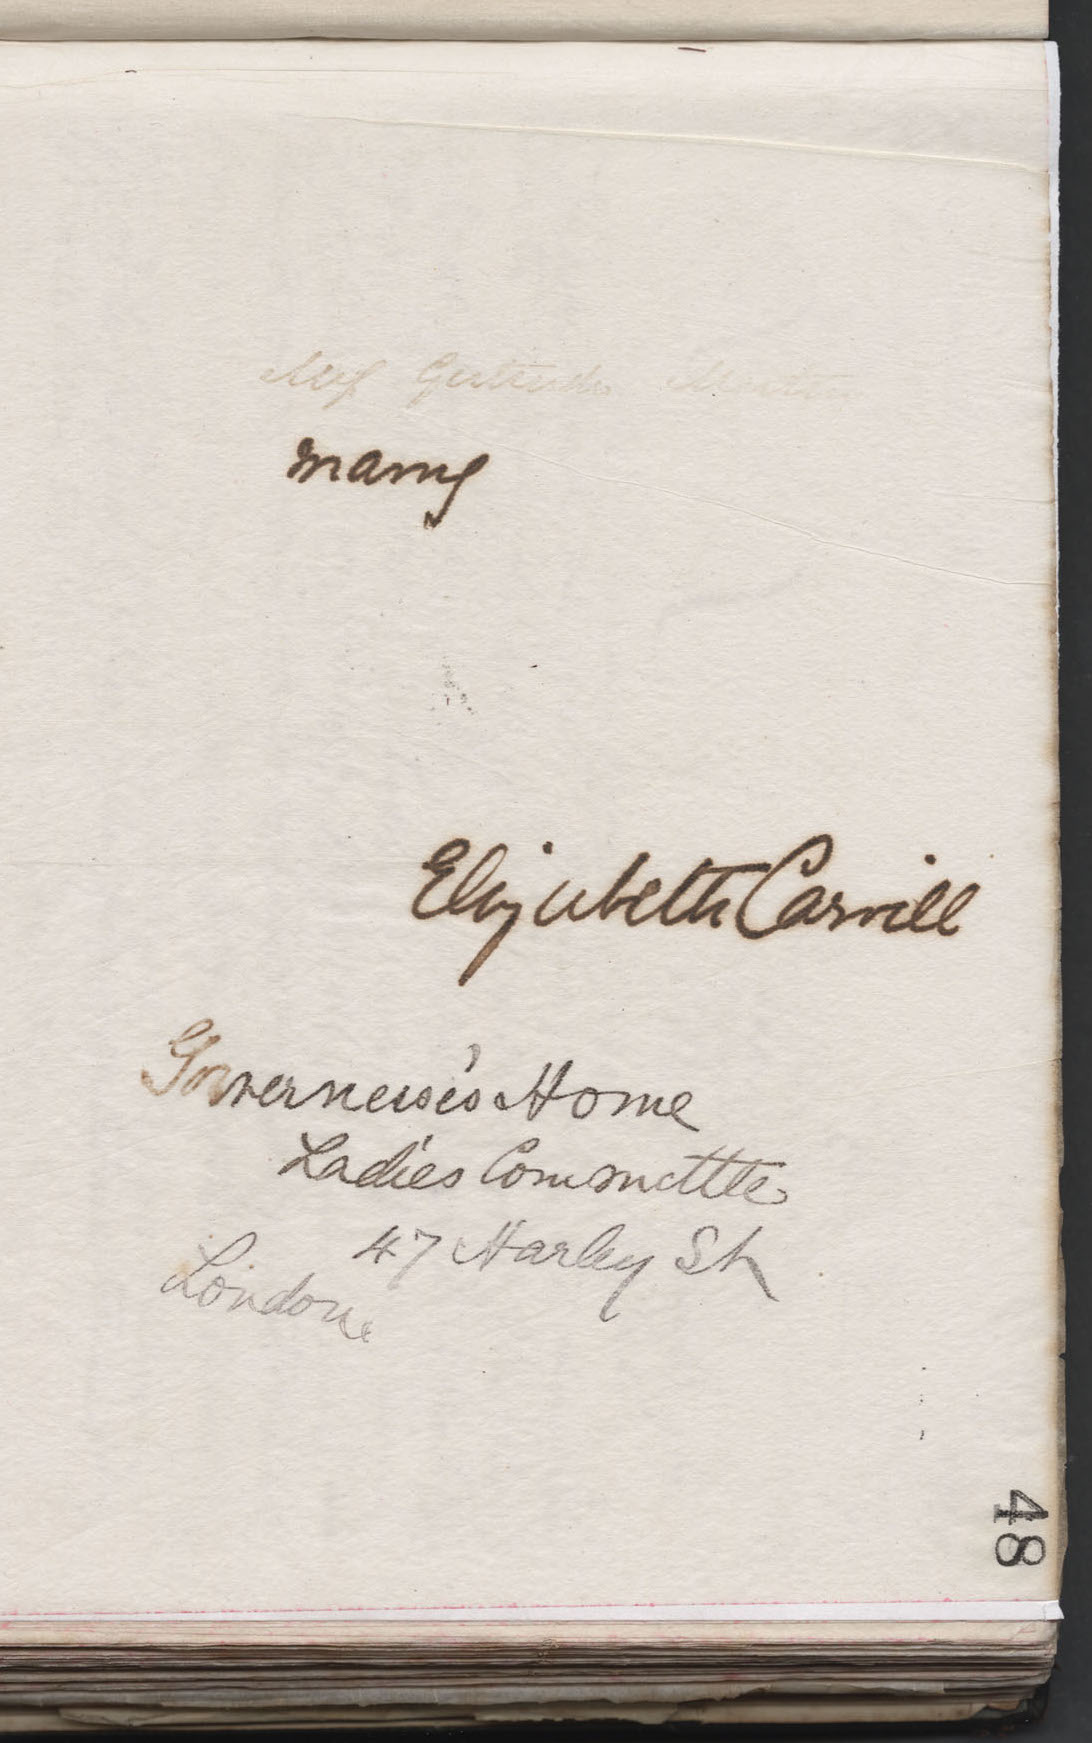 Gertrude
Elizabeth Carvill
Governesse's Home
Ladies Committee
47 Harley St
London
48